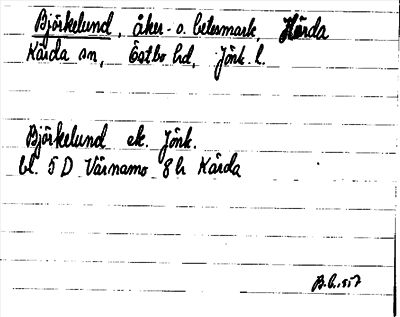 Björkelund, åker- o. betesmark, Kärda
Kärda sn, Östbo hd, Jönk. l.
Björkelund ek. Jönk.
bl. 5 D Värnamo 8 h Kärda